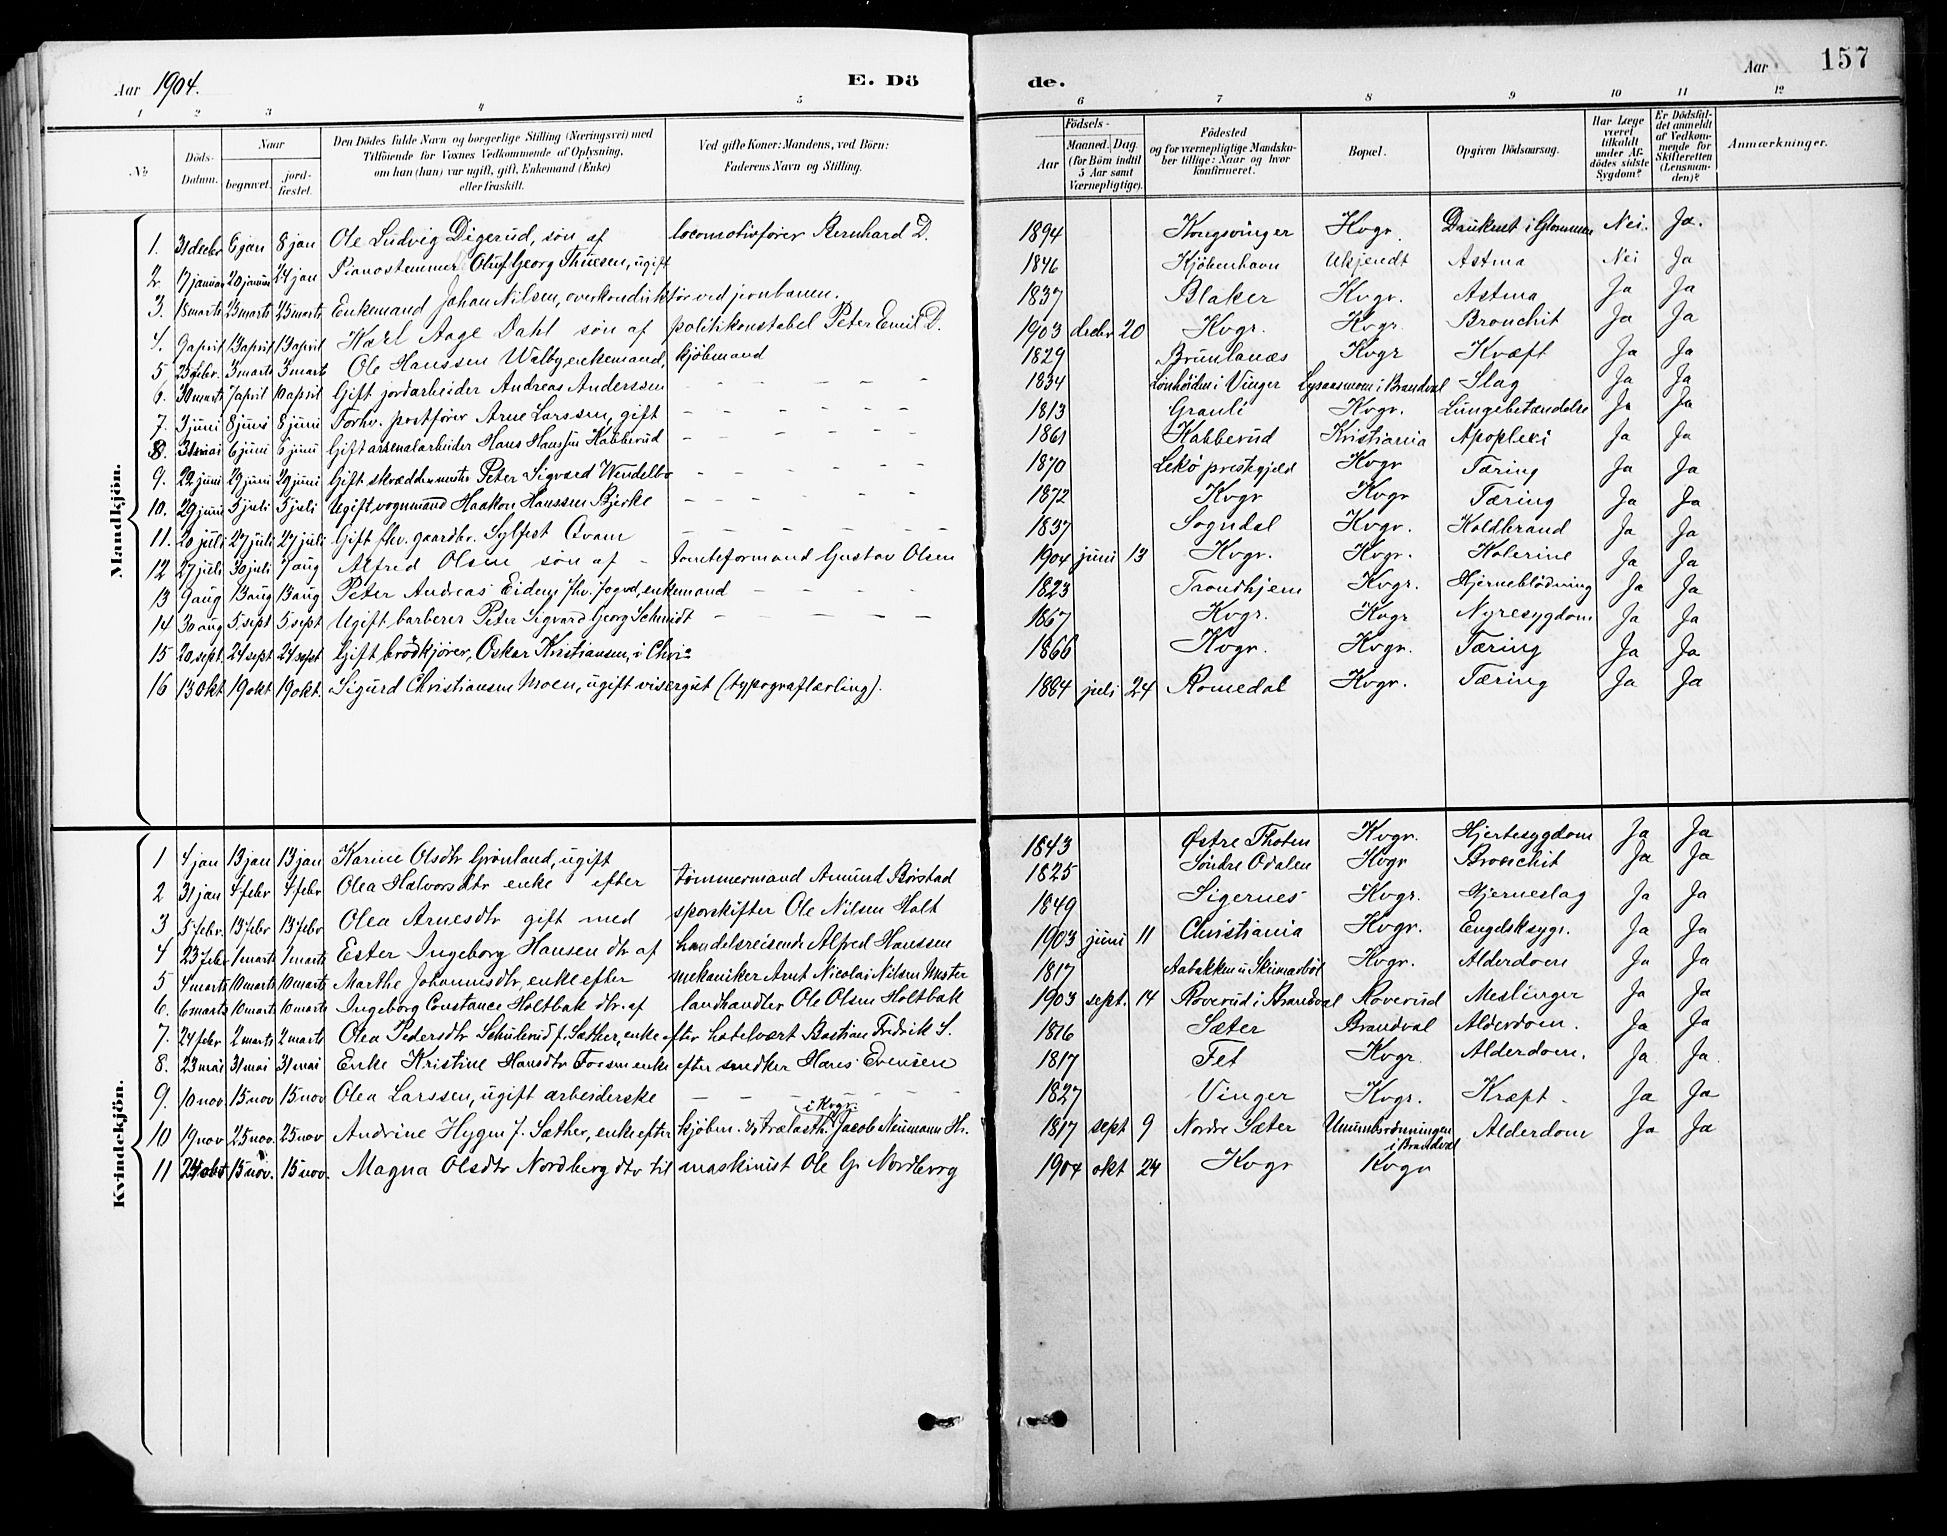 Aar 1904. E. Dö de. Aar 157
1 2 3 4 5 6 7 8 9 10 11 12
No Döds-Datum. Naar begravet. jord-fæstet. Den Dödes fulde Navn og borgerlige Stilling (Næringsvei) med Tilföiende for Voxnes Vedkommende af Oplysning, om han (hun) var ugift, gift, Enkemand (Enke) eller fraskilt. Ved gifte Koner: Mandens, ved Börn: Faderens Navn og Stilling. Födsels- Aar Maaned. Dag. (for Börn indtil 5 Aar samt Værnepligtige). Födested og for værnepligtige Mandska-ber tillige: Naar og hvor konfirmeret. Bopæl. Opgiven Dödsaarsag. Har Læge været tilkaldt under Af-dödes sidste Sygdom? Er Dödsfal-det anmeldt af Vedkom-mende for Skifteretten (Lensman-den)? Anmærkninger.
Mandkjön.
1. 31 decbr 6 jan 8 jan Ole Ludvig Digerud, søn af locomotivfører Bernhard D. 1894 Kongsvinger Kvgr. Druknet i Glommen Nei. Ja.
2. 17 januar 20 januar 24 jan Pianostemmer Oluf Georg Thuesen, ugift 1846 Kjöbenhavn Ukjendt Astma Nei Ja
3. 18 marts 23 marts 25 marts Enkemand Johan Nilsen, overkonduktør ved jernbanen. 1837 Blaker Kvgr. Astma Ja Ja
4. 9 april 13 april 13 april Karl Aage Dahl søn af politikonstabel Peter Emil D. 1903 decbr 20 Kvgr. Kvgr. Bronchit Ja Ja
5 25 febr. 3 marts 3 marts Ole Hanssen Walby, enkemand, kjøbmand 1829 Brunlanæs Kvgr Kræft Ja Ja
6. 30 marts 7 april 10 april Gift jordarbeider Andreas Anderssen – – – – 1834 i Vinger Lysaasmom i Brandval Slag Ja Ja
7. 3 juni 8 juni 8 juni Forhv. postfører Arne Larssen, gift – – – – 1813 Granli Kvgr. Lungebetændelse Ja Ja
8. 31 mai 6 juni 6 juni Gift arsenalarbeider Hans Hanssen Kabberud – – – – 1861 Kabberud Kristiania Apoplexi Ja Ja
9. 22 juni 29 juni 29 juni Gift skræddermester Peter Sigvard Wendelbo – – – – 1870 Lekø prestegjeld Kvgr Tæring Ja Ja
10. 29 juni 5 juli 5 juli Ugift vognmand Haakon Hanssen Bjerke – – – – 1872 Kvgr Kvgr Tæring Ja Ja
11. 20 juli 27 juli 27 juli Gift fhv. gaardbr. Sylfest Qvam – – – – 1837 Sogndal Kvgr. Koldbrand Ja Ja
12 27 juli 30 juli 7 aug Alfred Olsen søn af – tomteformand Gustav Olsen 1904 juni 13 Kvgr. Kvgr. Kolerine Ja Ja
13 9 aug 13 aug 13 aug Peter Andreas Eidem fhv. fogd, enkemand – – – – 1823 Trondhjem Kvgr. Hjerneblødning Ja Ja
14 30 aug 5 sept 5 sept Ugift barberer Peter Sigvard Georg Schmidt – – – – 1867 Kvgr. Kvgr Nyresygdom Ja Ja
15 20 sept. 24 sept 24 sept Gift brødkjører, Oskar Kristiansen, i Chria 1866 Kvgr. Kvgr. Tæring Ja Ja
16 13 okt 19 okt 19 okt. Sigurd Christiansen Moen, ugift visergut (typograflærling). 1884 juli 24 Romedal Kvgr. Tæring Ja Ja
Kvindekjön.
1 4 jan 13 jan 13 jan Karine Olsdtr Grønland, ugift 1843 Østre Thoten Kvgr. Hjertesygdom Ja Ja
2 31 jan 4 febr 4 febr Olea Halvorsdtr enke efter tømmermand Amund Børstad 1825 Søndre Odalen Kvgr Bronchit Ja Ja
3 5 febr. 13 febr 13 febr Olea Arnesdtr gift med sporskifter Ole Nilsen Holt 1849 Sigernes Kvgr. Hjerneslag Ja Ja
4 23 febr 1 marts 1 marts Ester Ingeborg Hansen dtr af handelsreisende Alfred Hanssen 1903 juni 11 Christiania Kvgr. Engelsksyge. Ja Ja
5 4 marts 10 marts 10 marts Marthe Johannisdtr, enke efter mekaniker Arnt Nicolai Nilsen 1817 Aabakken Kvgr. Alderdom Ja Ja
6. 6 marts 10 marts 10 marts Ingeborg Constance Holtbak dtr. af landhandler Ole Olsen Holtbak 1903 sept. 14 Roverud i Brandval Roverud Meslinger Ja Ja
7. 24 febr 2 marts 2 marts Olea Pedersdtr Schulerud f. Sæther, enke efter hotelvært Bastian Fredrik S. 1816 Sæter Brandval Alderdom. Ja Ja
8. 23 mai 31 mai 31 mai Enke Kristine Hansdtr Fossm enke efter snedker Hans Evensen 1817 Fet Kvgr. Alderdom. Ja Ja.
9. 10 nov 15 nov 15 nov Olea Larssen, ugift arbeiderske – – – – – 1827 Vinger Kvgr. Kræft. Ja Ja
i Kvgr.
10 19 nov 25 nov. 25 nov Andrine Hygen f. Sæther, enke efter kjøbm. og trælasth. Jacob Neumann H. 1817 sept 9 Nordre Sæter i Brandval Alderdom Ja Ja
11 15 nov. 15 nov. Magna Olsdtr Nordberg dtr til maskinist Ole G. Nordberg 1904 okt 24 Kvgr Kvgr